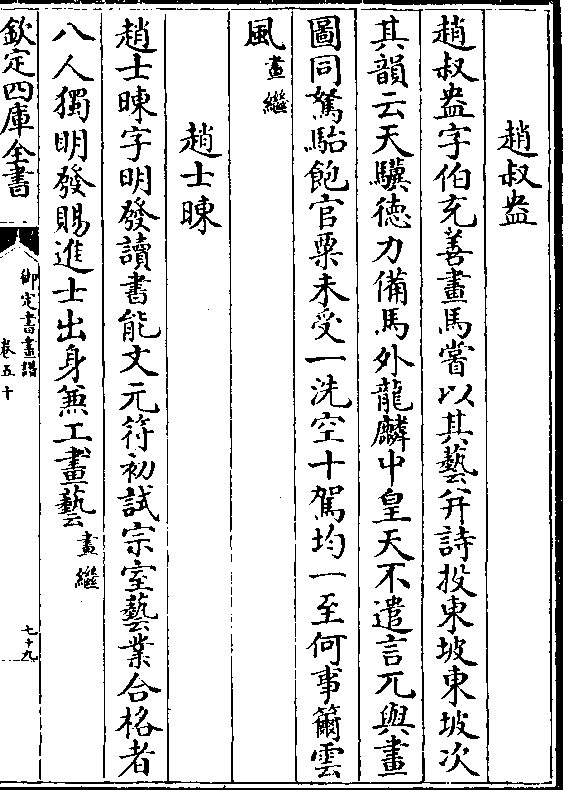 趙叔盎
趙叔盎字伯充善畫馬嘗以其藝并詩投東坡東坡次
其韻云天驥德力備馬外龍麟中皇天不遣言兀與畫
圖同駑駘飽官粟未受一洗空十駕均一至何事籋雲
風畫繼
趙士暕
趙士暕字明發讀書能文元符初試宗室藝業合格者
八人獨明發賜進士出身兼工畫藝畫繼
欽定四庫全書
御定書畫譜
卷五十
七十九